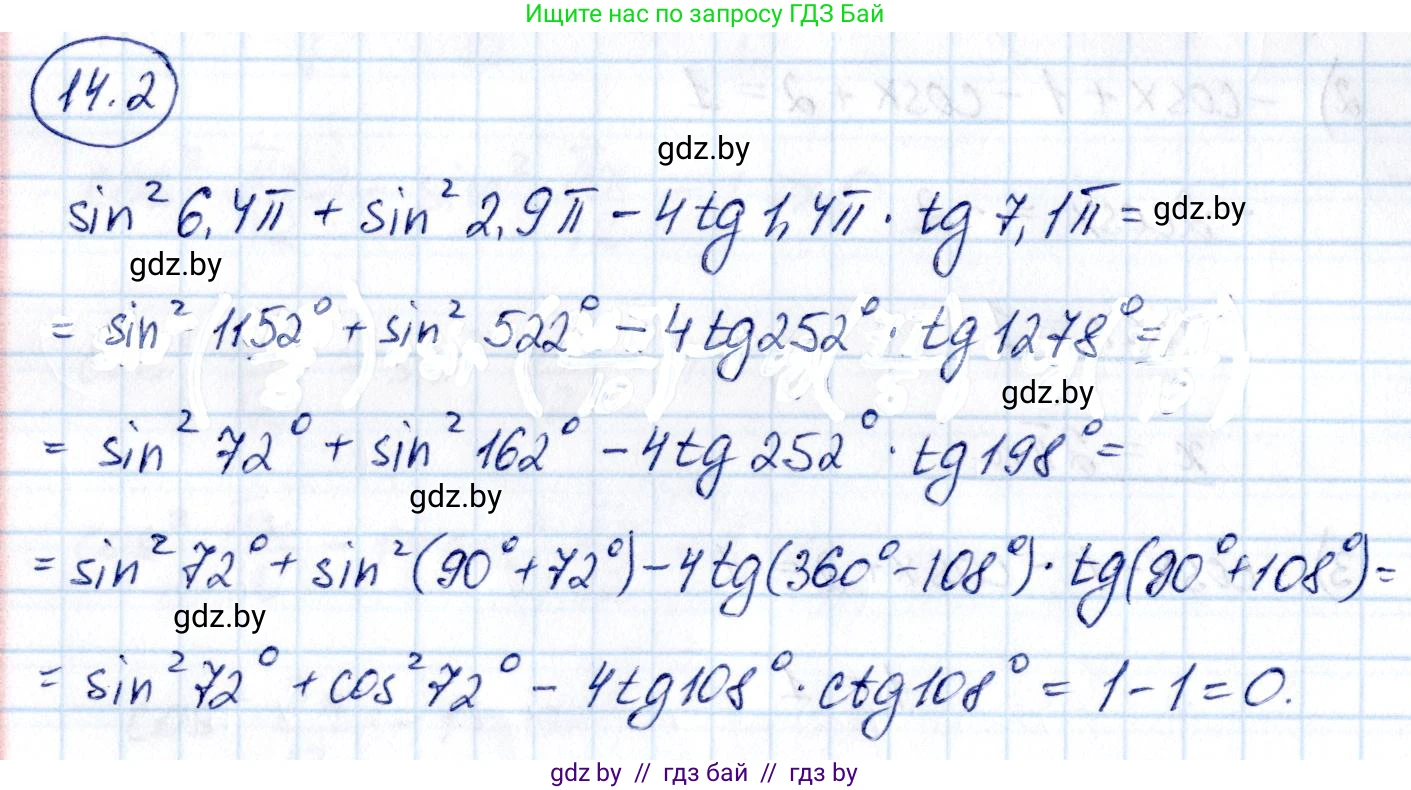 Ищите нас по запросу ГДЗ Бай
14.2
gdz.by
sin² 6,4π + sin² 2,9π − 4tg 1,4π · tg 7,1π = gdz.by
gdz.by
= sin² 1152° + sin² 522° − 4tg252° · tg 1278° =
gdz.by
= sin² 72° + sin² 162° − 4tg 252° · tg198° =
gdz.by
= sin² 72° + sin²(90° + 72°) − 4tg(360° − 108°) · tg(90° + 108°) =
gdz.by
= sin² 72° + cos² 72° − 4tg108° · ctg108° = 1 − 1 = 0.
gdz by // гдз бай // гдз by